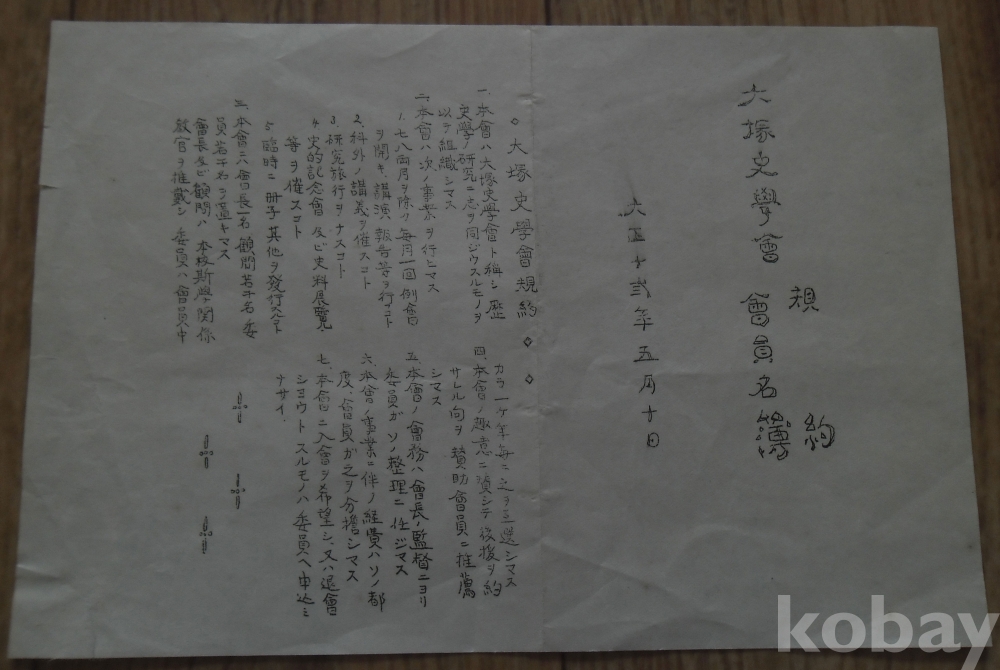 大塚史學會 規約
會員名簿
大正十弐年五月十日
◇ 大塚史學會規約 ◇ ◇
一、本會ハ大塚史學會ト稱シ歴
史學ノ研究ニ志ヲ同ジウスルモノヲ
以テ組織シマス
二、本會ハ次ノ事業ヲ行ヒマス
1. 七八両月ヲ除ク毎月一回例會
ヲ開キ、講演報告等ヲ行フコト
2. 科外ノ講義ヲ催スコト
3. 研究旅行ヲナスコト
4. 史的記念會及ビ史料展覧
等ヲ催スコト
5. 臨時ニ冊子其他ヲ發行スルコト
三、本會ニハ會長一名顧問若干名委
員若干名ヲ置キマス
會長及ビ顧問ハ本校斯學関係
教官ヲ推戴シ委員ハ會員中
カラ一ケ年毎ニ之ヲ互選シマス
四、本會ノ趣意ニ賛シテ後援ヲ約
サレル向ヲ賛助會員ニ推薦
シマス
五、本會ノ會務ハ會長ノ監督ニヨリ
委員ガソノ整理ニ任ジマス
六、本會ノ事業ニ伴ノ経費ハソノ都
度、會員ガ之ヲ分擔シマス
七、本會ニ入會ヲ希望シ、又ハ退會
シヨウトスルモノハ委員ヘ申込ミ
ナサイ.
kobay